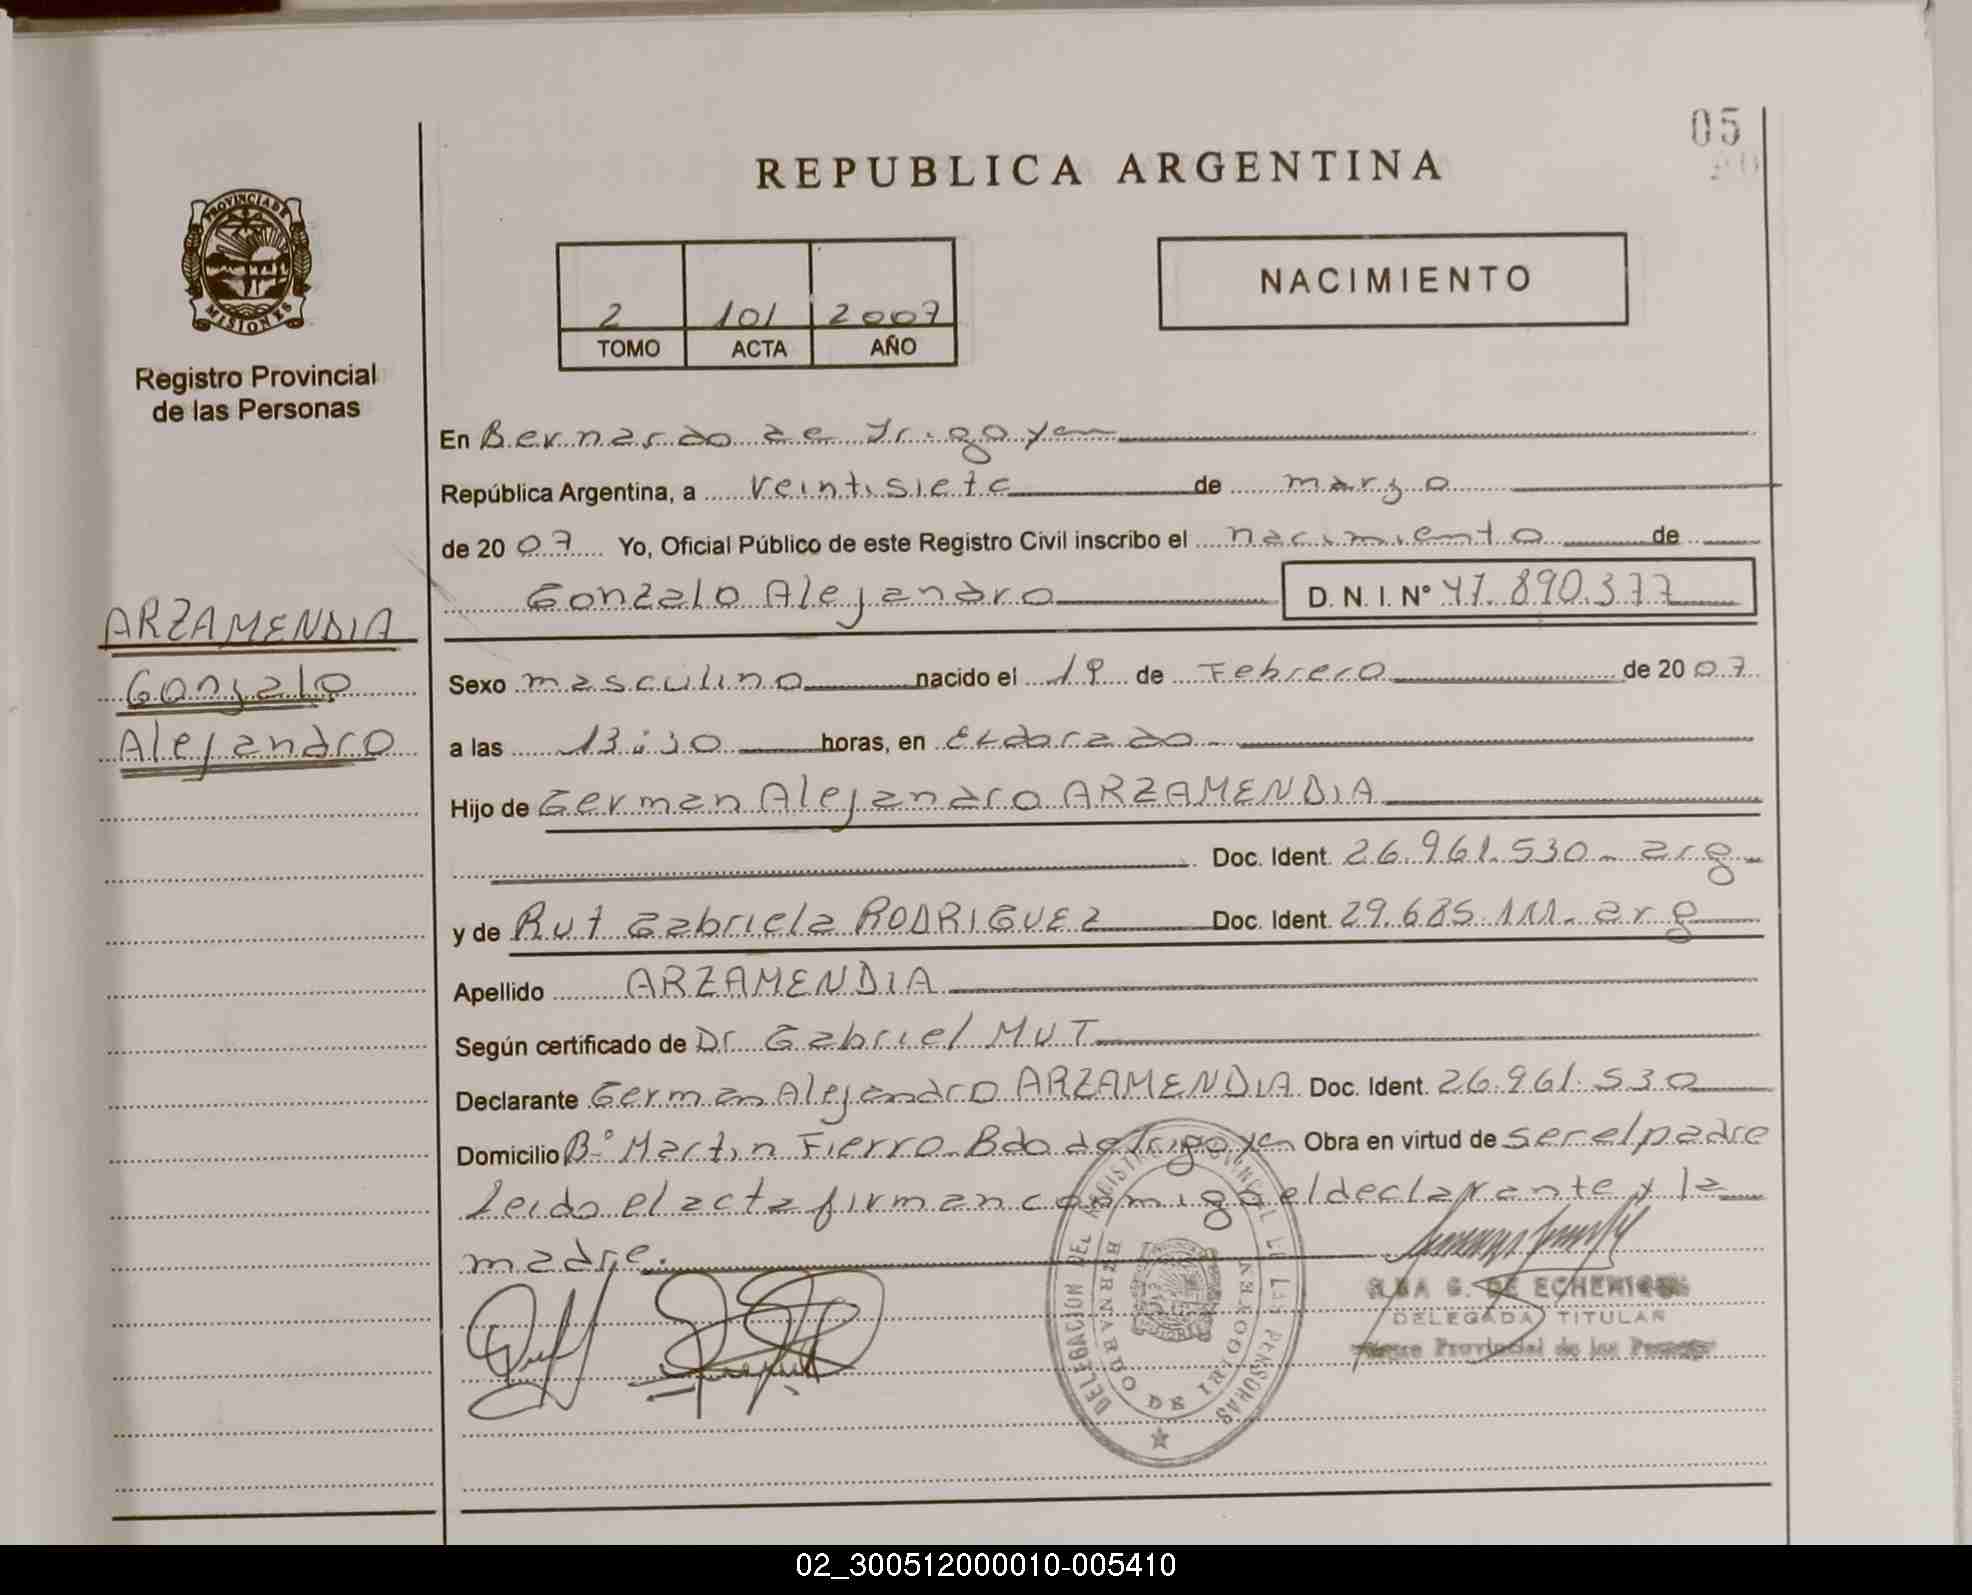 05
REPUBLICA ARGENTINA
PROVINCIA DE
MISIONES
Registro Provincial
de las Personas
NACIMIENTO
2 101 2007
TOMO ACTA AÑO
En Bernardo de Irigoyen
República Argentina, a veintisiete de marzo
de 2007 Yo, Oficial Público de este Registro Civil inscribo el nacimiento de
Gonzalo Alejandro D. N. I. Nº 47.890.377
ARZAMENDIA
Gonzalo
Alejandro
Sexo masculino nacido el 19 de Febrero de 2007
a las 13:30 horas, en Eldorado
Hijo de German Alejandro ARZAMENDIA
Doc. Ident. 26.961.530 - arg
y de Rut Gabriela RODRIGUEZ Doc. Ident. 29.685.111- arg
Apellido ARZAMENDIA
Según certificado de Dr Gabriel MUT
Declarante German Alejandro ARZAMENDIA Doc. Ident. 26.961.530
Domicilio Bº Martin Fierro-Bdo de Irigoyen Obra en virtud de ser el padre
Leido el acta firman conmigo el declarante y la
madre.
DELEGACION DEL REGISTRO PROVINCIAL DE LAS PERSONAS
BERNARDO DE IRIGOYEN
G. DE
DELEGADA TITULAR
Provincial de las
02_300512000010-005410